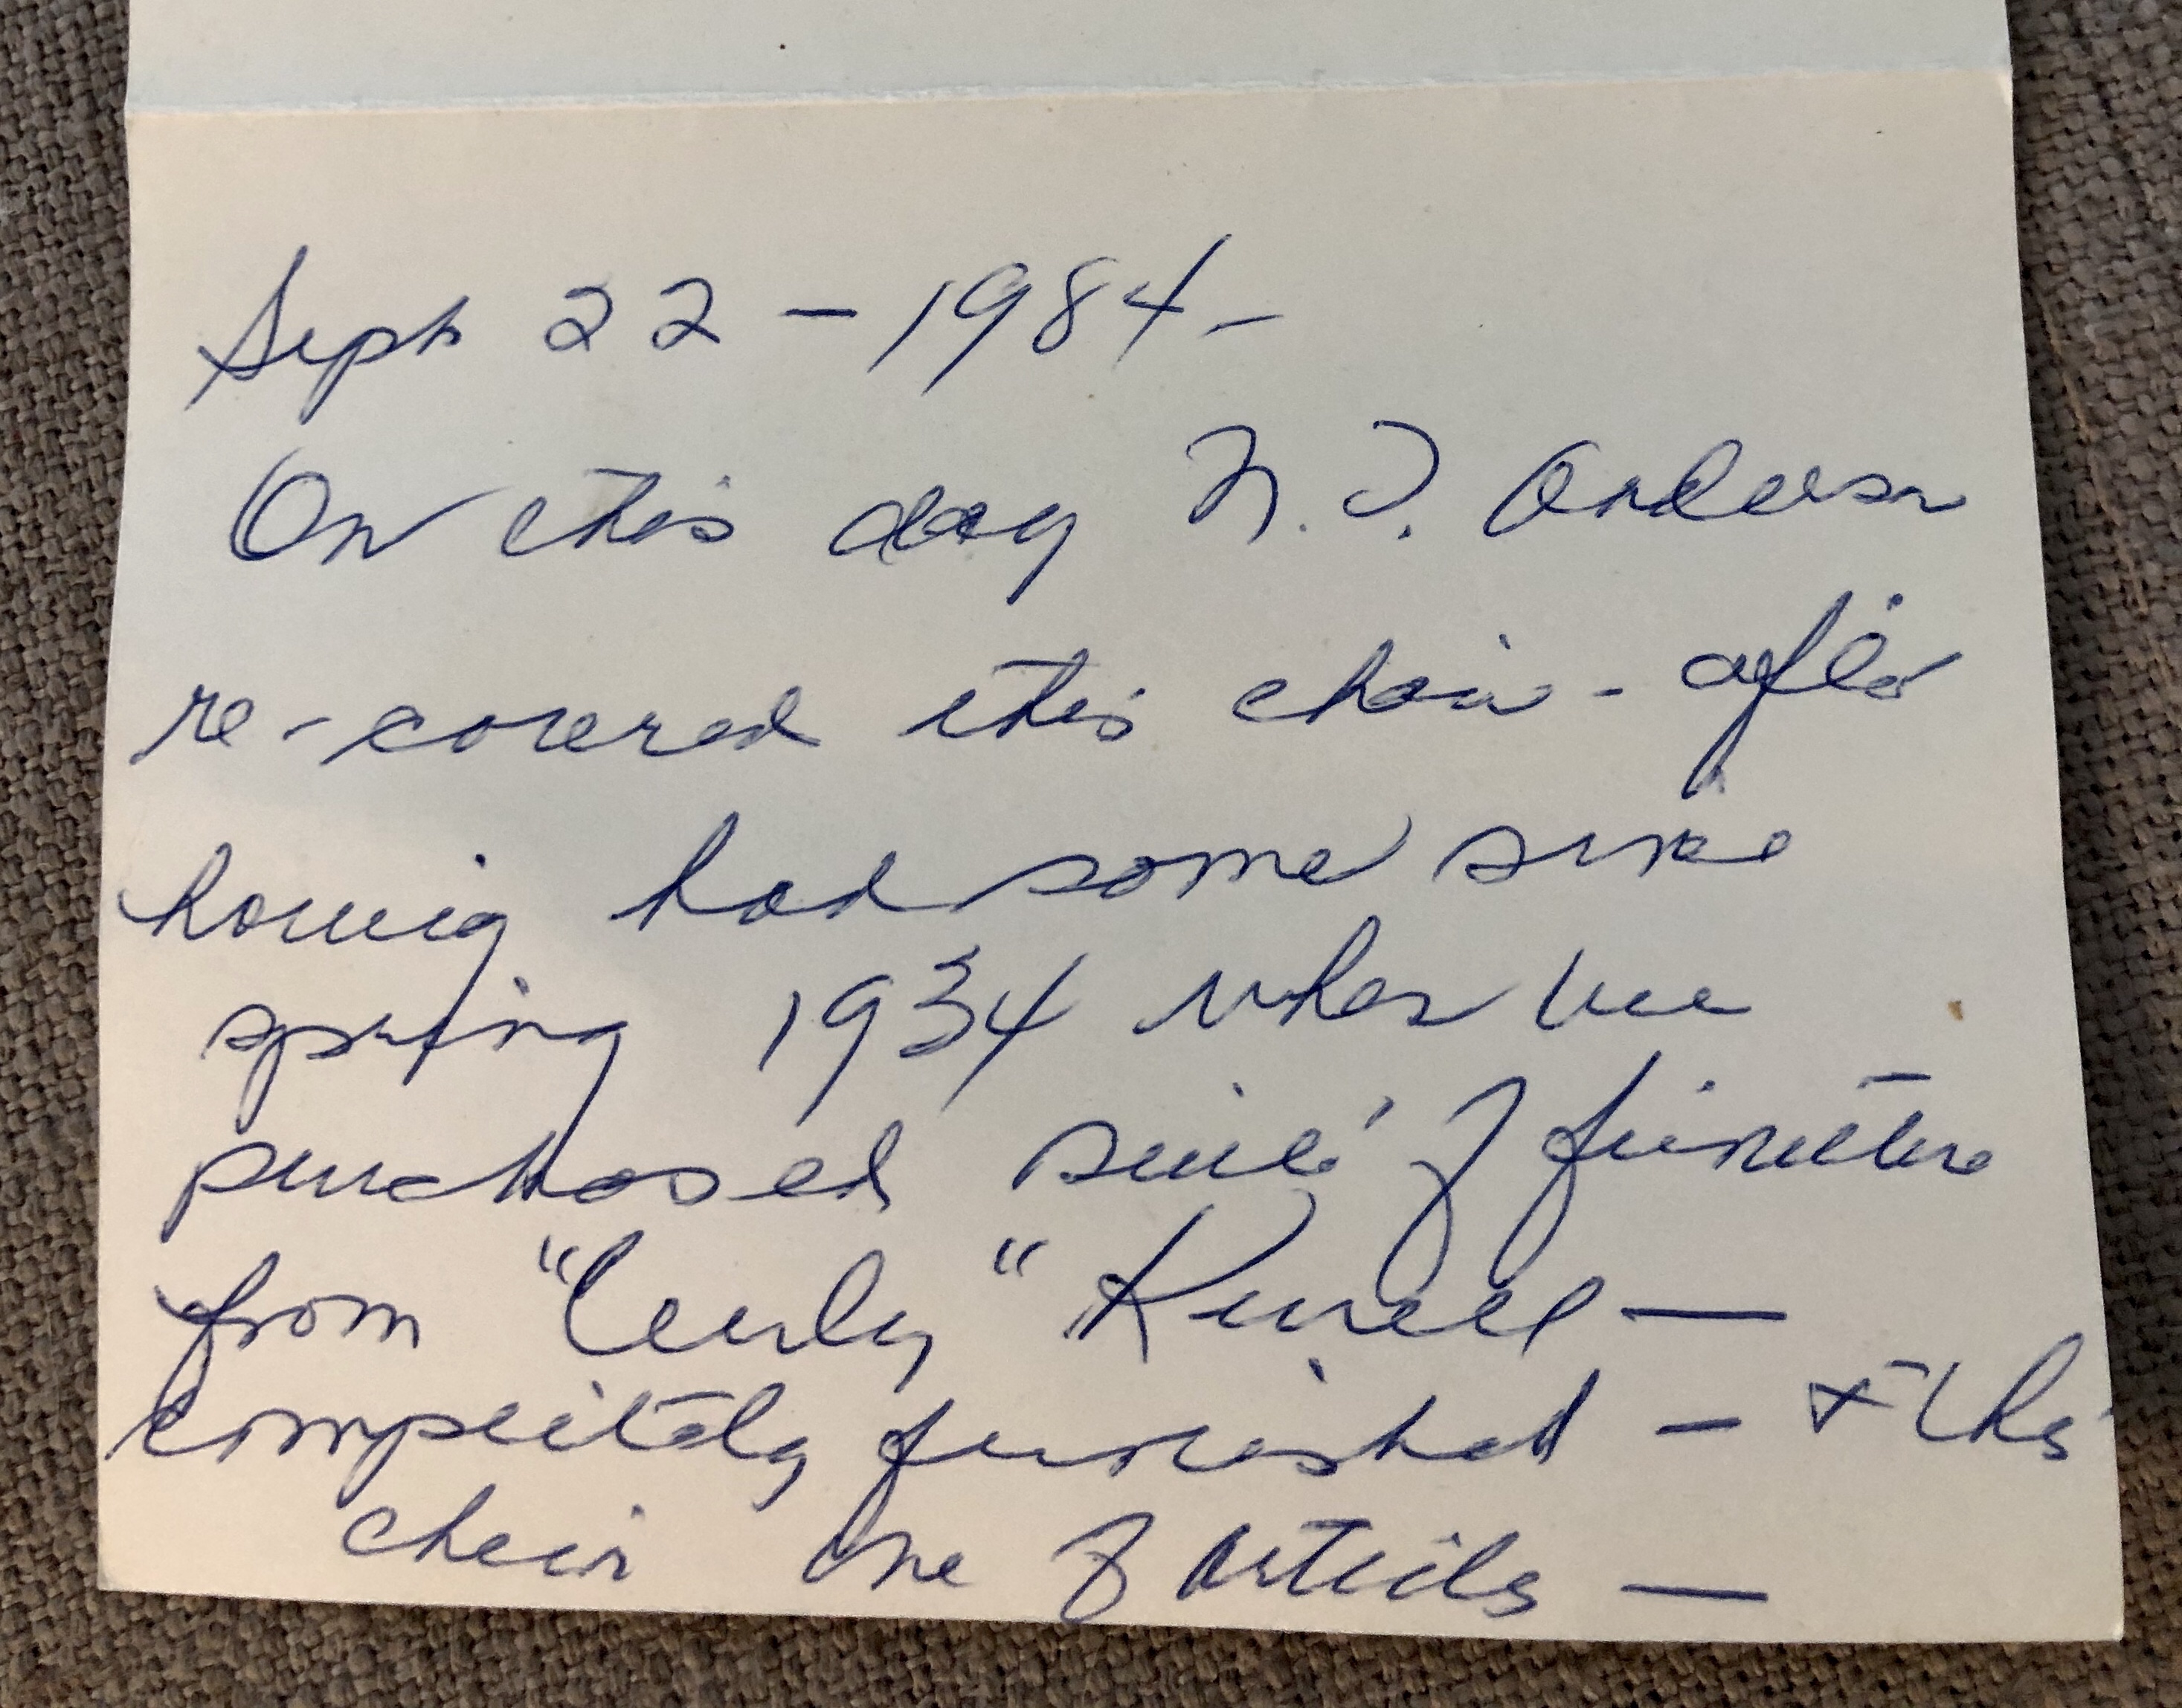 Sept 22 - 1984 -
On this day N. J. Anderson
re-covered this chair - after
having had some since
spring 1934 when we
purchased suite of furniture
from "Curly"
completely furnished - + this
chair one of articles -